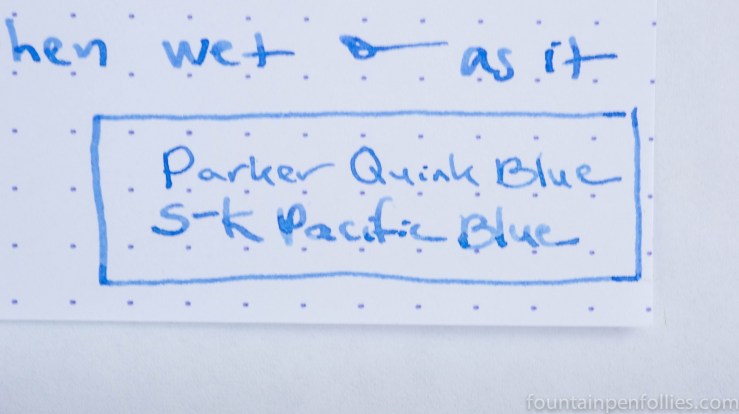 hen wet as it
Parker Quink Blue
S-K Pacific Blue
fountainpenfollies.com